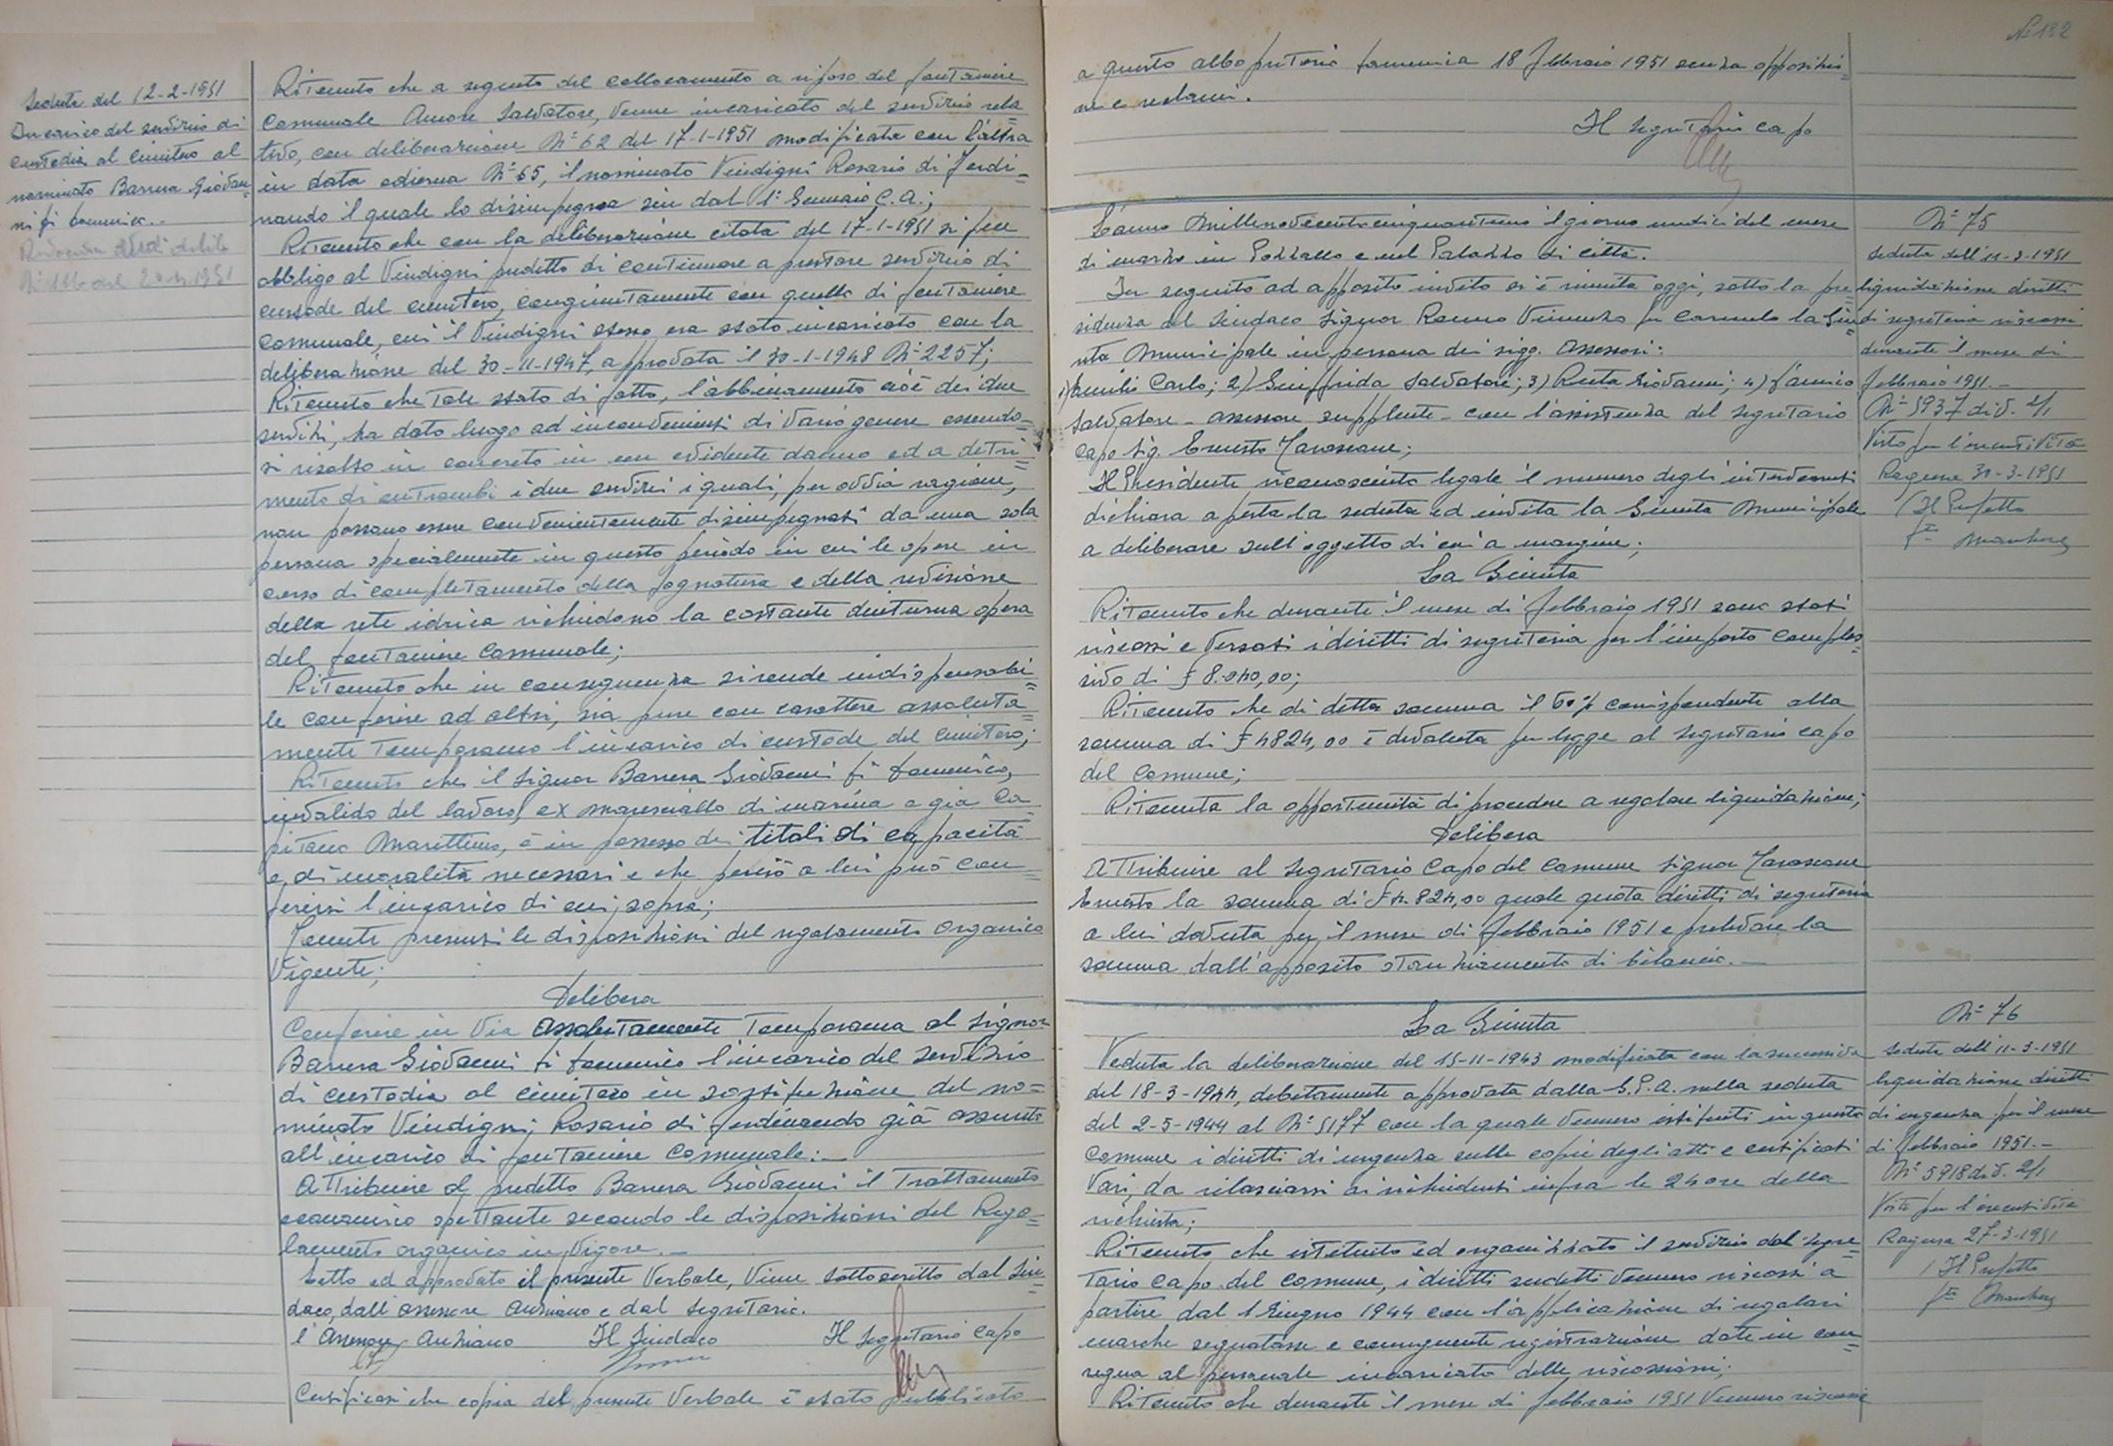 Seduta del 12-2-1951
Incarico del servizio di
custodia al cimitero al
nominato Barrera Giovan=
ni fu Domenico.-
Ritenuto che a seguito del collocamento a riposo del fontaniere
Comunale Amore Salvatore, venne incaricato del servizio rela=
tivo, con deliberazione N° 62 del 17-1-1951 modificata con l'altra
in data odierna N° 65, il nominato Vindigni Rosario di Ferdi=
nando il quale lo disimpegna sin dal 1° Gennaio C.A.;
Ritenuto che con la deliberazione citata del 17-1-1951 si fece
obbligo al Vindigni predetto di continuare a prestare servizio di
custode del cimitero, congiuntamente con quello di fontaniere
comunale, cui il Vindigni stesso era stato incaricato con la
deliberazione del 30-11-1947, approvata il 30-1-1948 N° 2257;
Ritenuto che tale stato di fatto, l'abbinamento cioè dei due
servizi, ha dato luogo ad inconvenienti di vario genere essendo=
si risolto in concreto in un evidente danno ed a detri=
mento di entrambi i due servizi i quali, per ovvia ragione,
non possono essere convenientemente disimpegnati da una sola
persona specialmente in questo periodo in cui le opere in
corso di completamento della fognatura e della revisione
della rete idrica richiedono la costante diuturna opera
del fontaniere Comunale;
Ritenuto che in conseguenza si rende indispensabi=
le conferire ad altri, sia pure con carattere assoluta=
mente temporaneo l'incarico di custode del cimitero;
Ritenuto che il Signor Barrera Giovanni fu Domenico,
invalido del lavoro, ex maresciallo di marina e già Ca=
pitano Marittimo, è in possesso dei titoli di capacità
e di moralità necessari e che perciò a lui può con=
ferirsi l'incarico di cui sopra;
Tenute presenti le disposizioni del regolamento organico
Vigente;
Delibera
Conferire in via assolutamente temporanea al Signor
Barrera Giovanni fu Domenico l'incarico del servizio
di custodia al cimitero in sostituzione del no=
minato Vindigni Rosario di Ferdinando già assunto
all'incarico di fontaniere Comunale.-
Attribuire al predetto Barrera Giovanni il trattamento
economico spettante secondo le disposizioni del Rego=
lamento organico in vigore.-
Letto ed approvato il presente Verbale, viene sottoscritto dal Sin=
daco, dall'assessore anziano e dal Segretario.
l'Assessore Anziano Il Sindaco Il Segretario Capo
Certificasi che copia del presente Verbale è stato pubblicato
N° 182
a questo albo pretorio domenica 18 febbraio 1951 senza opposizio=
ni e reclami.
Il Segretario Capo
L'anno millenovecentocinquantuno il giorno undici del mese
di marzo in Pozzallo e nel Palazzo di città.
In seguito ad apposito invito si è riunita oggi, sotto la pre=
sidenza del Sindaco Signor Vincenzo fu Carmelo la Giu=
nta Municipale in persona dei sigg. Assessori:
1) Carlo; 2) Giuffrida Salvatore; 3) Ruta Giovanni; 4)
Salvatore - assessore supplente - con l'assistenza del Segretario
Capo Sig. Ernesto Tarascone;
Il Presidente riconosciuto legale il numero degli intervenuti
dichiara aperta la seduta ed invita la Giunta Municipale
a deliberare sull'oggetto di cui a margine;
La Giunta
Ritenuto che durante il mese di febbraio 1951 sono stati
riscossi e versati i diritti di segreteria per l'importo comples=
sivo di £ 8.040,00;
Ritenuto che di detta somma il 60% corrispondente alla
somma di £ 4824,00 è devoluta per legge al segretario capo
del Comune;
Ritenuta la opportunità di procedere a regolare liquidazione;
Delibera
Attribuire al Segretario Capo del Comune Signor Tarascone
Ernesto la somma di £ 4.824,00 quale quota diritti di segreteria
a lui dovuta per il mese di febbraio 1951 e prelevare la
somma dall'apposito stanziamento di bilancio.-
N° 75
Seduta dell'11-3-1951
liquidazione diritti
di segreteria riscossi
durante il mese di
febbraio 1951.-
N° 5937 div. 2/1
Visto per l'esecutività
Ragusa 30-3-1951
Il Prefetto
La Giunta
Veduta la deliberazione del 15-11-1943 modificata con la successiva
del 18-3-1944, debitamente approvata dalla G.P.A. nella seduta
del 2-5-1944 al N° 5177 con la quale vennero istituiti in questo
Comune i diritti di urgenza sulle copie degli atti e certificati
Vari, da rilasciarsi ai richiedenti infra le 24 ore della
richiesta;
Ritenuto che istituito ed organizzato il servizio dal segre=
tario Capo del Comune, i diritti suddetti vennero riscossi a
partire dal 1 Giugno 1944 con l'applicazione di regolari
marche segnatasse e conseguente registrazione date in con=
segna al personale incaricato delle riscossioni;
Ritenuto che durante il mese di febbraio 1951 vennero riscossi
N° 76
Seduta dell'11-3-1951
liquidazione diritti
di urgenza per il mese
di febbraio 1951.-
N° 5918 div. 2/1
Visto per l'esecutività
Ragusa 27-3-1951
Il Prefetto